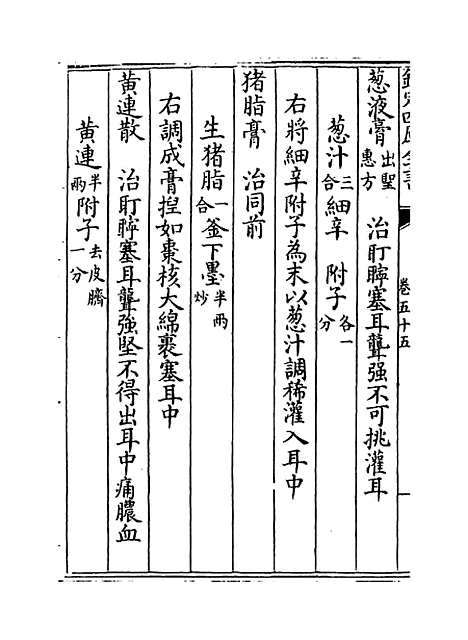 欽定四庫全書
卷五十五
葱液膏 出聖惠方 治耵聹塞耳聾强不可挑灌耳
葱汁 三合 細辛 附子 各一分
右將細辛附子為末以葱汁調稀灌入耳中
猪脂膏 治同前
生猪脂 一合 釜下墨 半兩炒
右調成膏揑如棗核大綿裹塞耳中
黄連散 治耵聹塞耳聾強堅不得出耳中痛膿血
黄連 半兩 附子 去皮臍一分